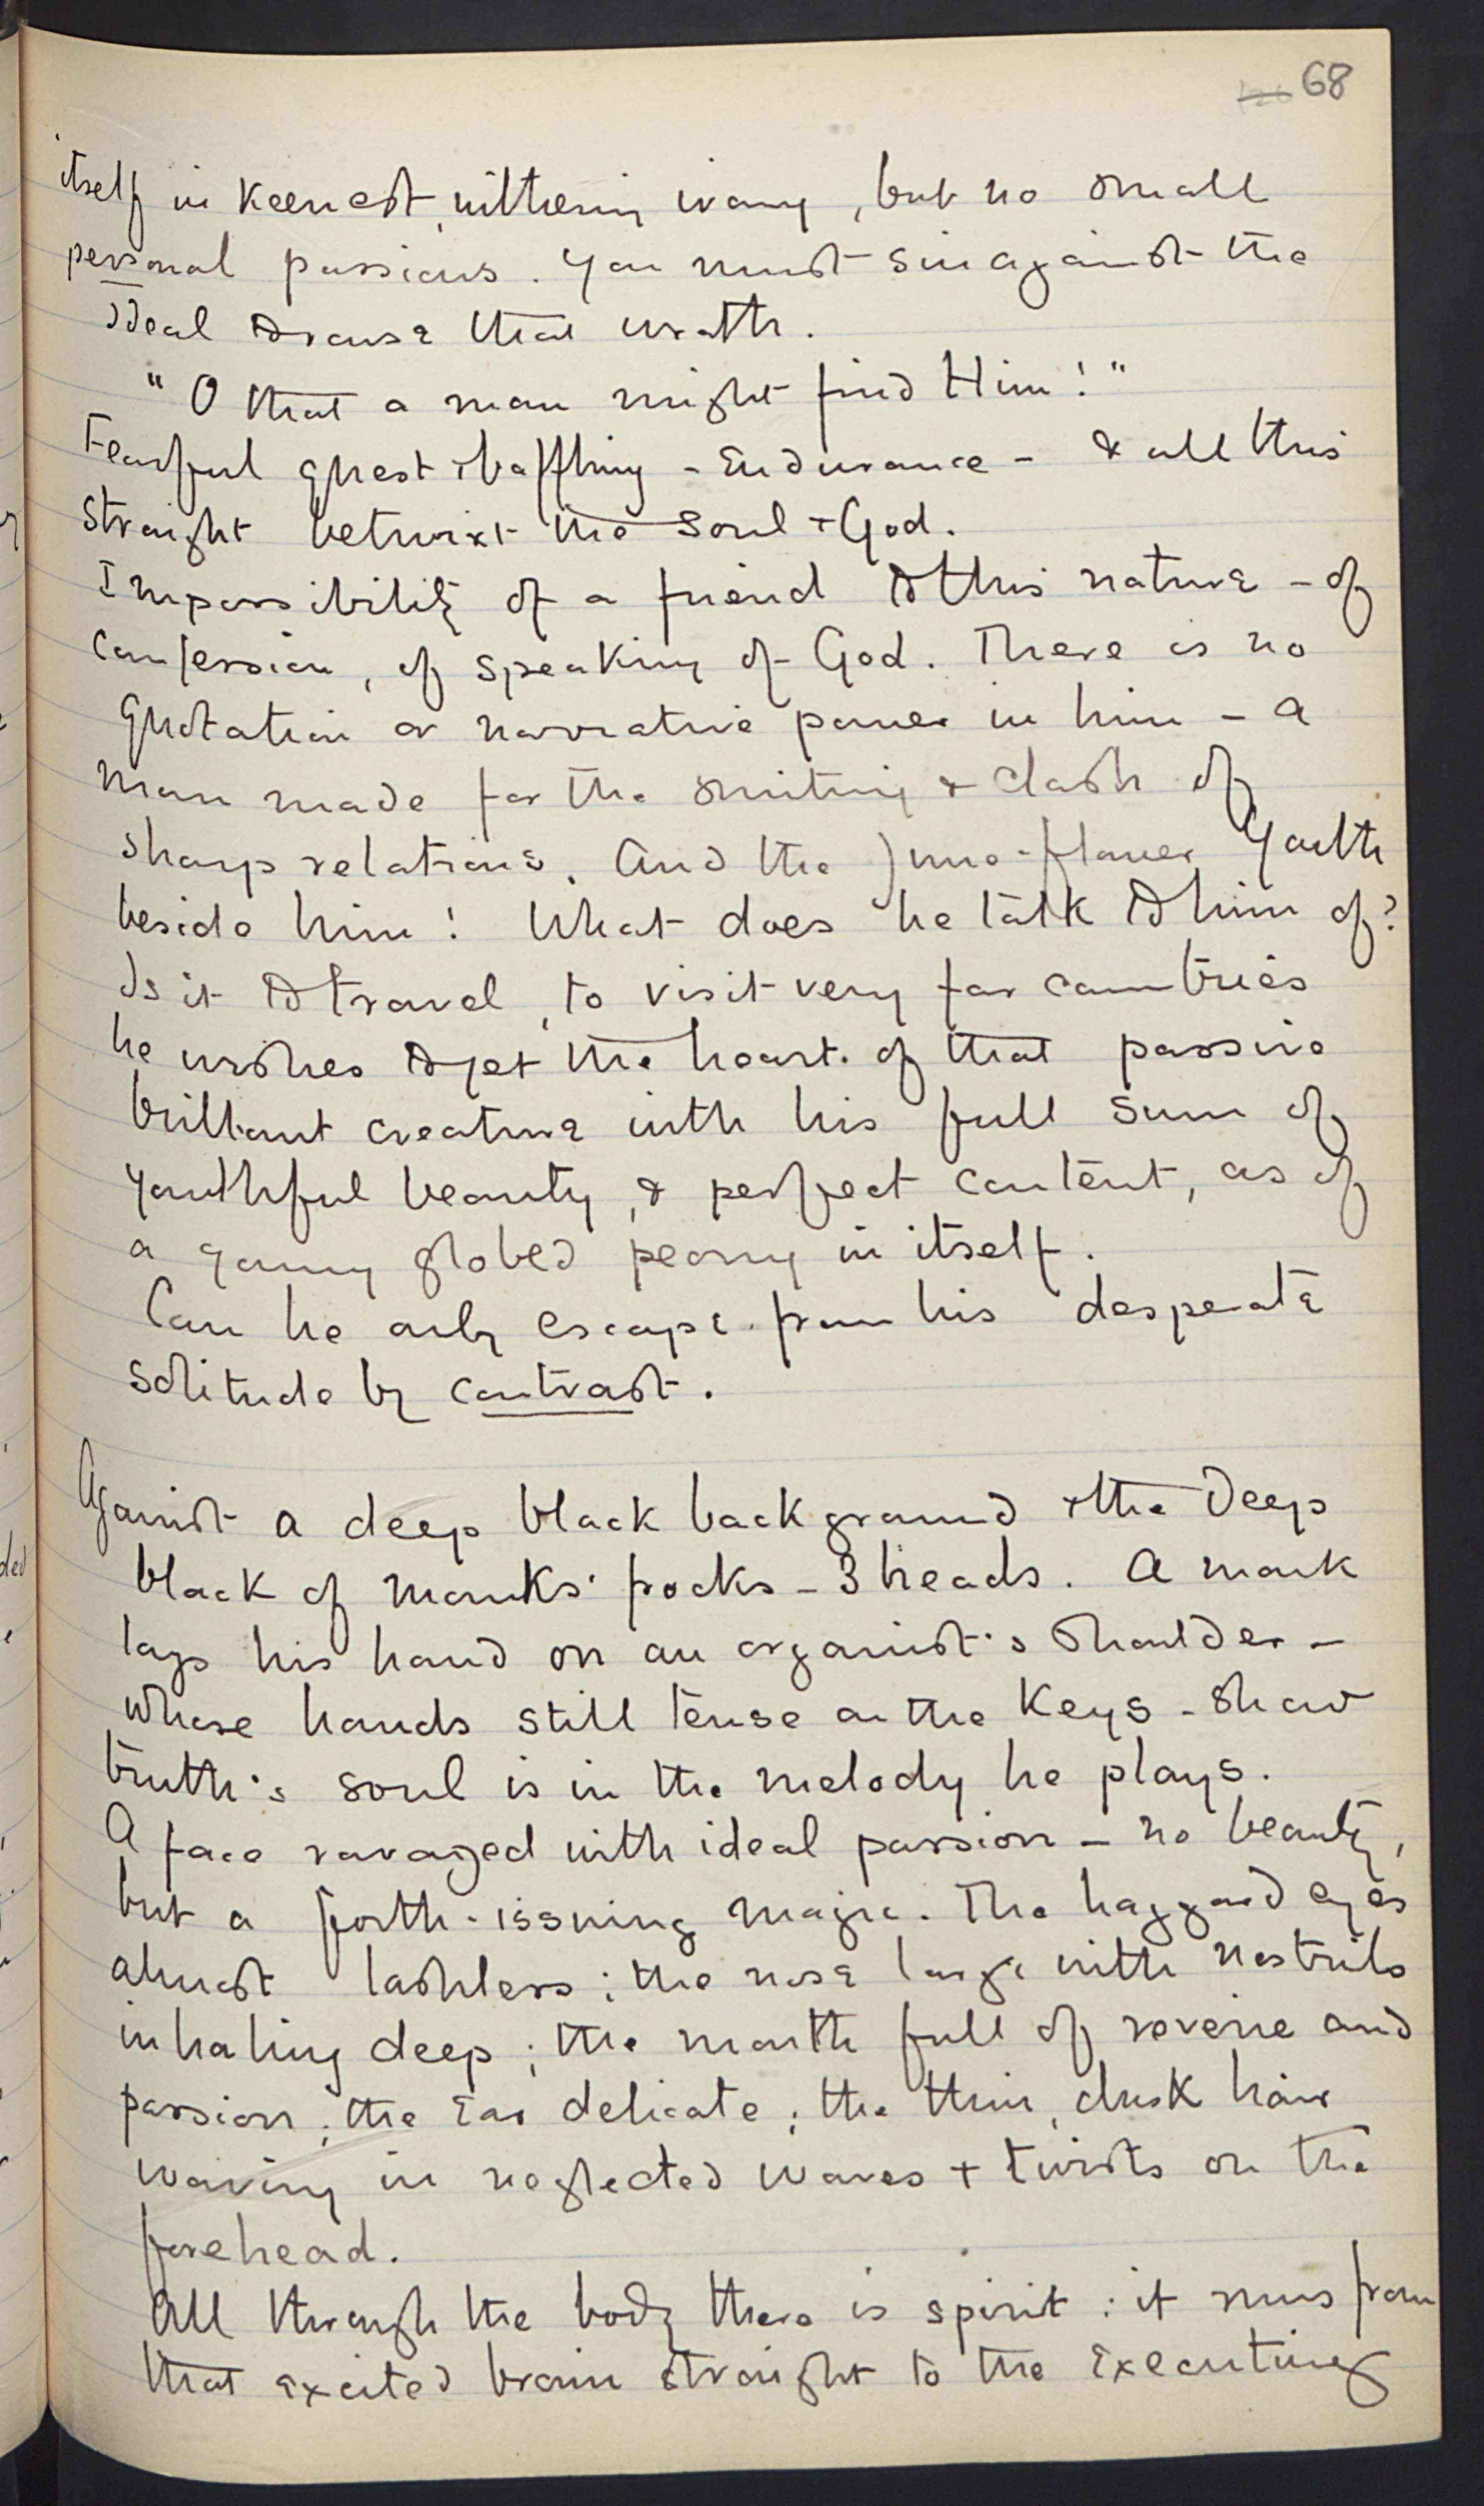 68
itself in keenest, withering irony, but no small
personal passions. You must sin against the
Ideal to rouse that wrath.
"O that a man might find Him!"
Fearful quest & baffling - Endurance - & all this
straight betwixt the soul & God.
Impossibility of a friend to this nature - of
Confession, of speaking of God. There is no
Quotation or narrative power in him - a
man made for the smiting & clash of
sharp relations. And the June-flower Youth
beside him! What does he talk to him of?
Is it to travel, to visit very far countries
he wishes to get the heart of that passive
brilliant creature with his full sum of
youthful beauty, & perfect content, as of
a young globed peony in itself.
Can he only escape from his desperate
solitude by contrast.
Against a deep black background & the Deep
black of monks' frocks - 3 heads. A monk
lays his hand on an organist's shoulder -
whose hands still tense on the Keys - show
truth's soul is in the melody he plays.
A face ravaged with ideal passion - no beauty,
but a forth-issuing magic. The haggard eyes
almost lashless; the nose large with nostrils
inhaling deep; the mouth full of reverie and
passion; the Ear delicate; the thin, dusk hair
waving in neglected waves + twists on the
forehead.
All through the body there is spirit: it runs from
that excited brain straight to the Executing